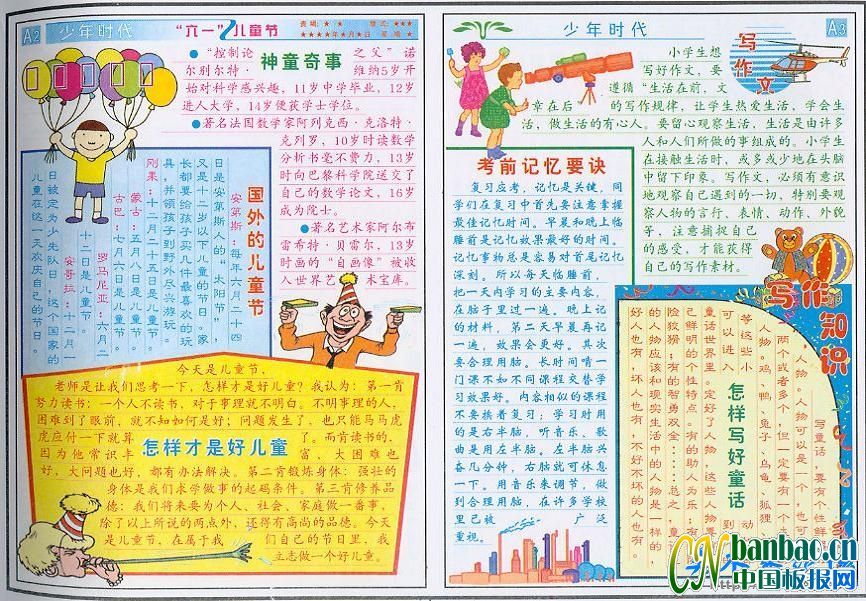 A2
少年时代
“六一”儿童节
责编：★ ★
版式：★★★
★★★★年★月★日 星期★
神童奇事
●“控制论之父”诺
尔别尔特·维纳5岁开
始对科学感兴趣，11岁中学毕业，12岁
进人大学，14岁便获学士学位。
●著名法国数学家阿列克西·克洛特·
克列罗，10岁时读数学
分析书毫不费力，13岁
时向巴黎科学院送交了
自己的数学论文，16岁
成为院士。
●著名艺术家阿尔布
雷希特·贝雷尔，13岁
时画的“自画像”被收
人世界艺术宝库。
国外的儿童节
安第斯：每年六月二十四
日是安第斯人的“太阳节”，
又是十二岁以下儿童的节日。家
长都要给孩子买几件最喜欢的玩
具，并领孩子到野外尽兴游玩。
刚果：十二月二十五日是儿童节。
蒙古：五月八日是儿童节。
古巴：七月六日是儿童节。
罗马尼亚：六月二
十二日是儿童节。
安哥拉：十二月一
日被定为少先队日，这个国家的
儿童在这一天欢庆自己的节日。
怎样才是好儿童
今天是儿童节，
老师是让我们思考一下，怎样才是好儿童？我认为：第一肯
努力读书：一个人不读书，对于事理就不明白。不明事理的人，
困难到了眼前，就不知如何是好；问题发生了，也只能马马虎
虎应付一下就算了。而肯读书的，
因为他常识丰富、大困难也
好，大问题也好，都有办法解决。第二肯锻炼身体：强壮的
身体是我们求学做事的起码条件。第三肯修养品
德：我们将来要为个人、社会、家庭做一番事，
除了以上所说的两点外，还得有高尚的品德。今天
是儿童节，在属于我们自己的节日里，我
立志做一个好儿童。
少年时代
A3
写作文
小学生想
写好作文，要
遵循“生活在前，文
章在后的写作规律，让学生热爱生活，学会生
活，做生活的有心人。要留心观察生活，生活是由许多
人和人们所做的事组成的。小学生
在接触生活时，或多或少地在头脑
中留下印象。写作文，必须有意识
地观察自己遇到的一切，特别要观
察人物的言行、表情、动作、外貌
等，注意捕捉自己
的感受，才能获得
自己的写作素材。
考前记忆要诀
复习应考，记忆是关键，同
学们在复习中首先要注意掌握
最佳记忆时间。早晨和晚上临
睡前是记忆效果最好的时间。
记忆事物总是容易对首尾记忆
深刻。所以每天临睡前，
把一天内学习的主要内容，
在脑子里过一遍。晚上记
的材料，第二天早晨再记
一遍，效果会更好。其次
要合理用脑。长时间啃一
门课不如不同课程交替学
习效果好。内容相似的课程
不要挨着复习；学习时用
的是右半脑，听音乐、歌
曲是用左半脑。左半脑兴
奋几分钟，右脑就可休息
一下。用音乐来调节，做
到合理用脑，在许多学校
里已被广泛
重视。
写作知识
怎样写好童话
写童话，要有个性鲜
人物。人物可以是一个，也可
两个或者多个，但一定要有一个主
人物。鸡、鸭、兔子、乌龟、狐狸
等这些小动
可以进入到
童话世界里。定好了人物，这些人物要
己鲜明的个性特点。有的助人为乐；有
险狡猾；有的智勇双全……总之，童话
的人物应该和现实生活中的人物是一样的，
好人也有，坏人也有，不好不坏的人也有。
CN banbao.cn
中国板报网